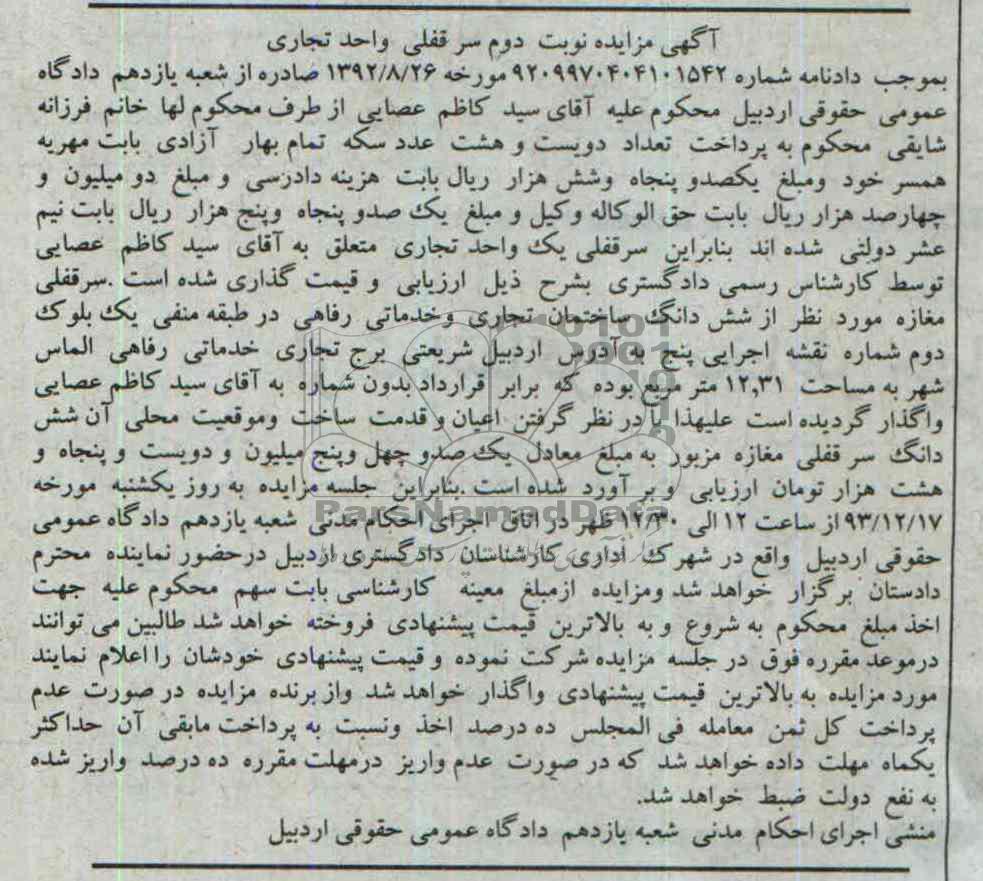 آگهی مزایده نوبت دوم سر قفلی واحد تجاری
بموجب دادنامه شماره ۹۲۰۹۹۷۰۴۰۴۱۰۱۵۴۲ مورخه ۱۳۹۲/۸/۲۶ صادره از شعبه یازدهم دادگاه
عمومی حقوقی اردبیل محکوم علیه آقای سید کاظم عصایی از طرف محکوم لها خانم فرزانه
شایقی محکوم به پرداخت تعداد دویست و هشت عدد سکه تمام بهار آزادی بابت مهریه
همسر خود ومبلغ یکصدو پنجاه وشش هزار ریال بابت هزینه دادرسی و مبلغ دو میلیون و
چهارصد هزار ریال بابت حق الوکاله وکیل و مبلغ یک صدو پنجاه وپنج هزار ریال بابت نیم
عشر دولتی شده اند بنابراین سرقفلی یک واحد تجاری متعلق به آقای سید کاظم عصایی
توسط کارشناس رسمی دادگستری بشرح ذیل ارزیابی و قیمت گذاری شده است .سرقفلی
مغازه مورد نظر از شش دانگ ساختمان تجاری وخدماتی رفاهی در طبقه منفی یک بلوک
دوم شماره نقشه اجرایی پنج به آدرس اردبیل شریعتی برج تجاری خدماتی رفاهی الماس
شهر به مساحت ۱۲,۳۱ متر مربع بوده که برابر قرارداد بدون شماره به آقای سید کاظم عصایی
واگذار گردیده است علیهذا با در نظر گرفتن اعیان و قدمت ساخت وموقعیت محلی آن شش
دانگ سر قفلی مغازه مزبور به مبلغ معادل یک صدو چهل وپنج میلیون و دویست و پنجاه و
هشت هزار تومان ارزیابی و بر آورد شده است .بنابراین جلسه مزایده به روز یکشنبه مورخه
۹۳/۱۲/۱۷ از ساعت ۱۲ الی ۱۲/۳۰ ظهر در اتاق اجرای احکام مدنی شعبه یازدهم دادگاه عمومی
حقوقی اردبیل واقع در شهرک اداری کارشناسان دادگستری اردبیل در حضور نماینده محترم
دادستان برگزار خواهد شد ومزایده ازمبلغ معینه کارشناسی بابت سهم محکوم علیه جهت
اخذ مبلغ محکوم به شروع و به بالاترین قیمت پیشنهادی فروخته خواهد شد طالبین می توانند
درموعد مقرره فوق در جلسه مزایده شرکت نموده و قیمت پیشنهادی خودشان را اعلام نمایند
مورد مزایده به بالاترین قیمت پیشنهادی واگذار خواهد شد واز برنده مزایده در صورت عدم
پرداخت کل ثمن معامله فی المجلس ده درصد اخذ ونسبت به پرداخت مابقی آن حداکثر
یکماه مهلت داده خواهد شد که در صورت عدم واریز درمهلت مقرره ده درصد واریز شده
به نفع دولت ضبط خواهد شد.
منشی اجرای احکام مدنی شعبه یازدهم دادگاه عمومی حقوقی اردبیل
ParsNamadData